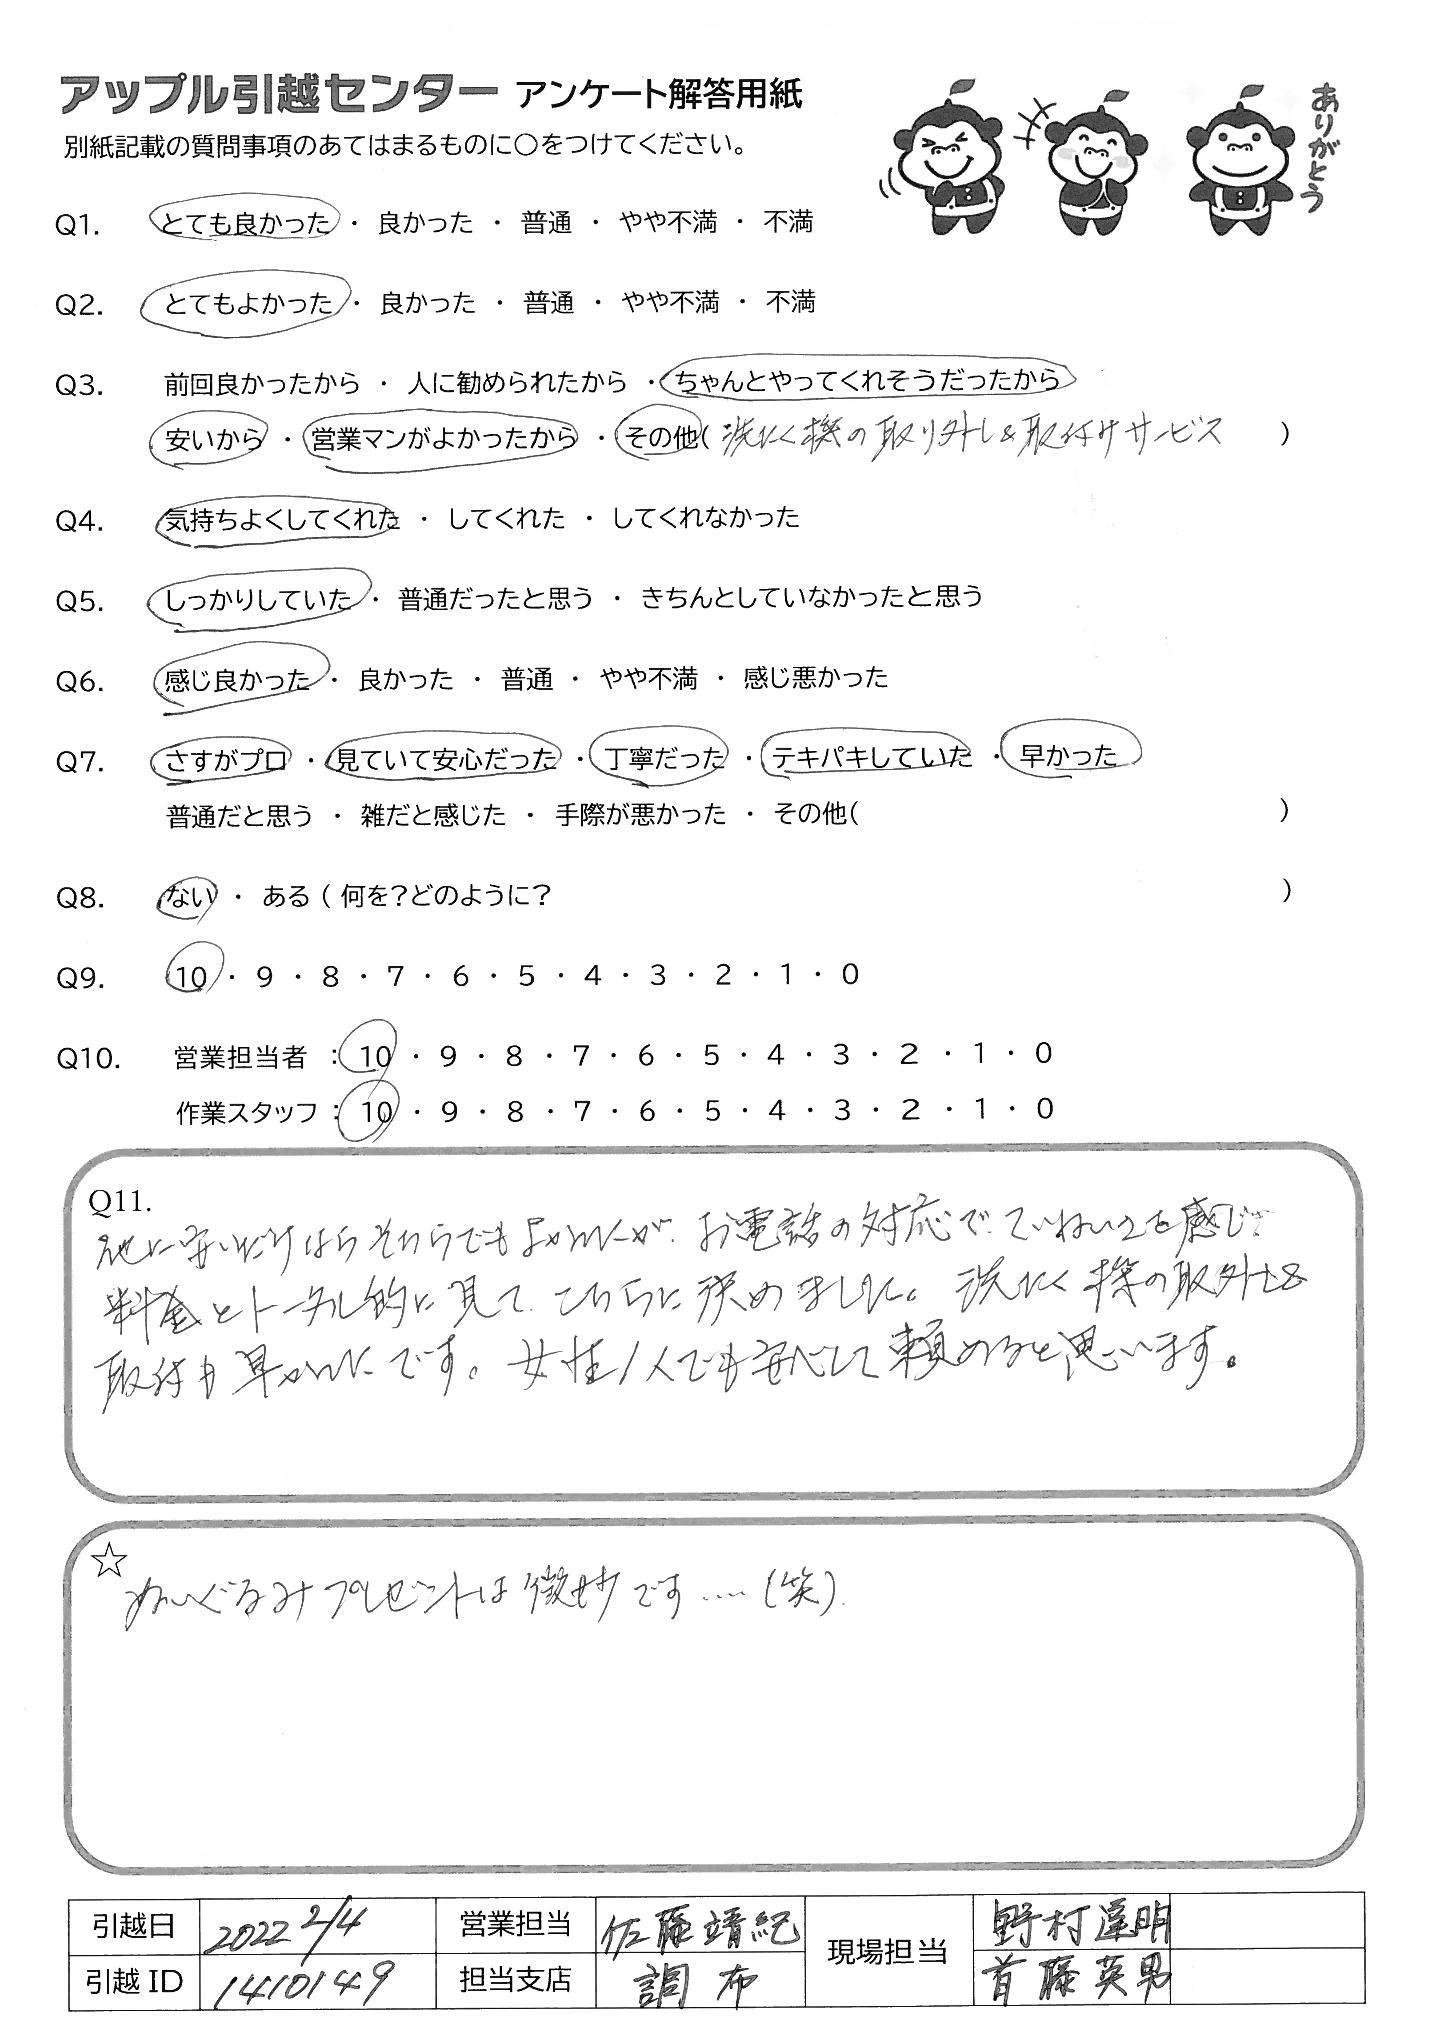 アップル引越センター アンケート解答用紙
別紙記載の質問事項のあてはまるものに〇をつけてください。
ありがとう
Q1. とても良かった ・ 良かった ・ 普通 ・ やや不満 ・ 不満
Q2. とてもよかった ・ 良かった ・ 普通 ・ やや不満 ・ 不満
Q3. 前回良かったから ・ 人に勧められたから ・ ちゃんとやってくれそうだったから
安いから ・ 営業マンがよかったから ・ その他( 洗たく機の取り外し&取付けサービス )
Q4. 気持ちよくしてくれた ・ してくれた ・ してくれなかった
Q5. しっかりしていた ・ 普通だったと思う ・ きちんとしていなかったと思う
Q6. 感じ良かった ・ 良かった ・ 普通 ・ やや不満 ・ 感じ悪かった
Q7. さすがプロ ・ 見ていて安心だった ・ 丁寧だった ・ テキパキしていた ・ 早かった
普通だと思う ・ 雑だと感じた ・ 手際が悪かった ・ その他( )
Q8. ない ・ ある ( 何を?どのように? )
Q9. 10 ・ 9 ・ 8 ・ 7 ・ 6 ・ 5 ・ 4 ・ 3 ・ 2 ・ 1 ・ 0
Q10. 営業担当者 : 10 ・ 9 ・ 8 ・ 7 ・ 6 ・ 5 ・ 4 ・ 3 ・ 2 ・ 1 ・ 0
作業スタッフ : 10 ・ 9 ・ 8 ・ 7 ・ 6 ・ 5 ・ 4 ・ 3 ・ 2 ・ 1 ・ 0
Q11.
他に安いだけならそちらでもよかったが、お電話の対応で、ていねいさを感じ、
料金とトータル的に見て、こちらに決めました。洗たく機の取外し&
取付も早かったです。女性1人でも安心して頼めると思います。
☆
ぬいぐるみプレゼントは微妙です……(笑)
引越日 2022 2/4 営業担当 佐藤靖紀 現場担当 野村達明
引越 ID 1410149 担当支店 調布 首藤英男